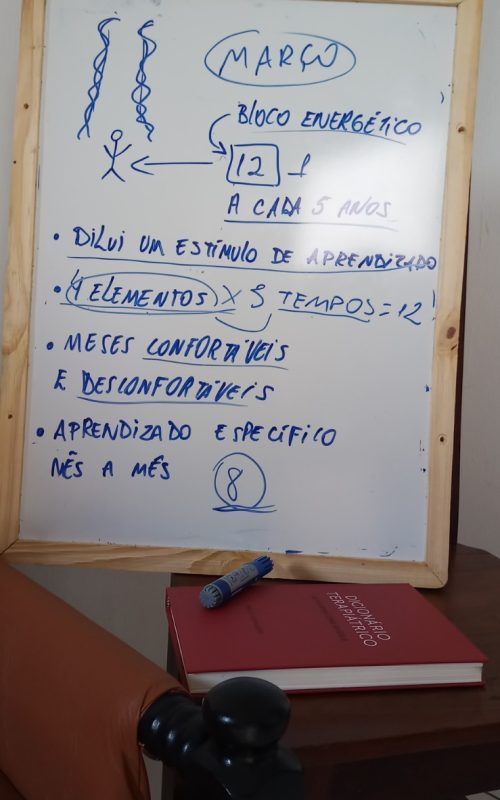 MARÇO
BLOCO ENERGÉTICO
12 1
A CADA 5 ANOS
• DILUI UM ESTÍMULO DE APRENDIZADO
• 4 ELEMENTOS X 3 TEMPOS = 12
• MESES CONFORTÁVEIS
E DESCONFORTÁVEIS
• APRENDIZADO ESPECÍFICO
MÊS A MÊS
8
DICIONÁRIO
TERAPIÁTRICO